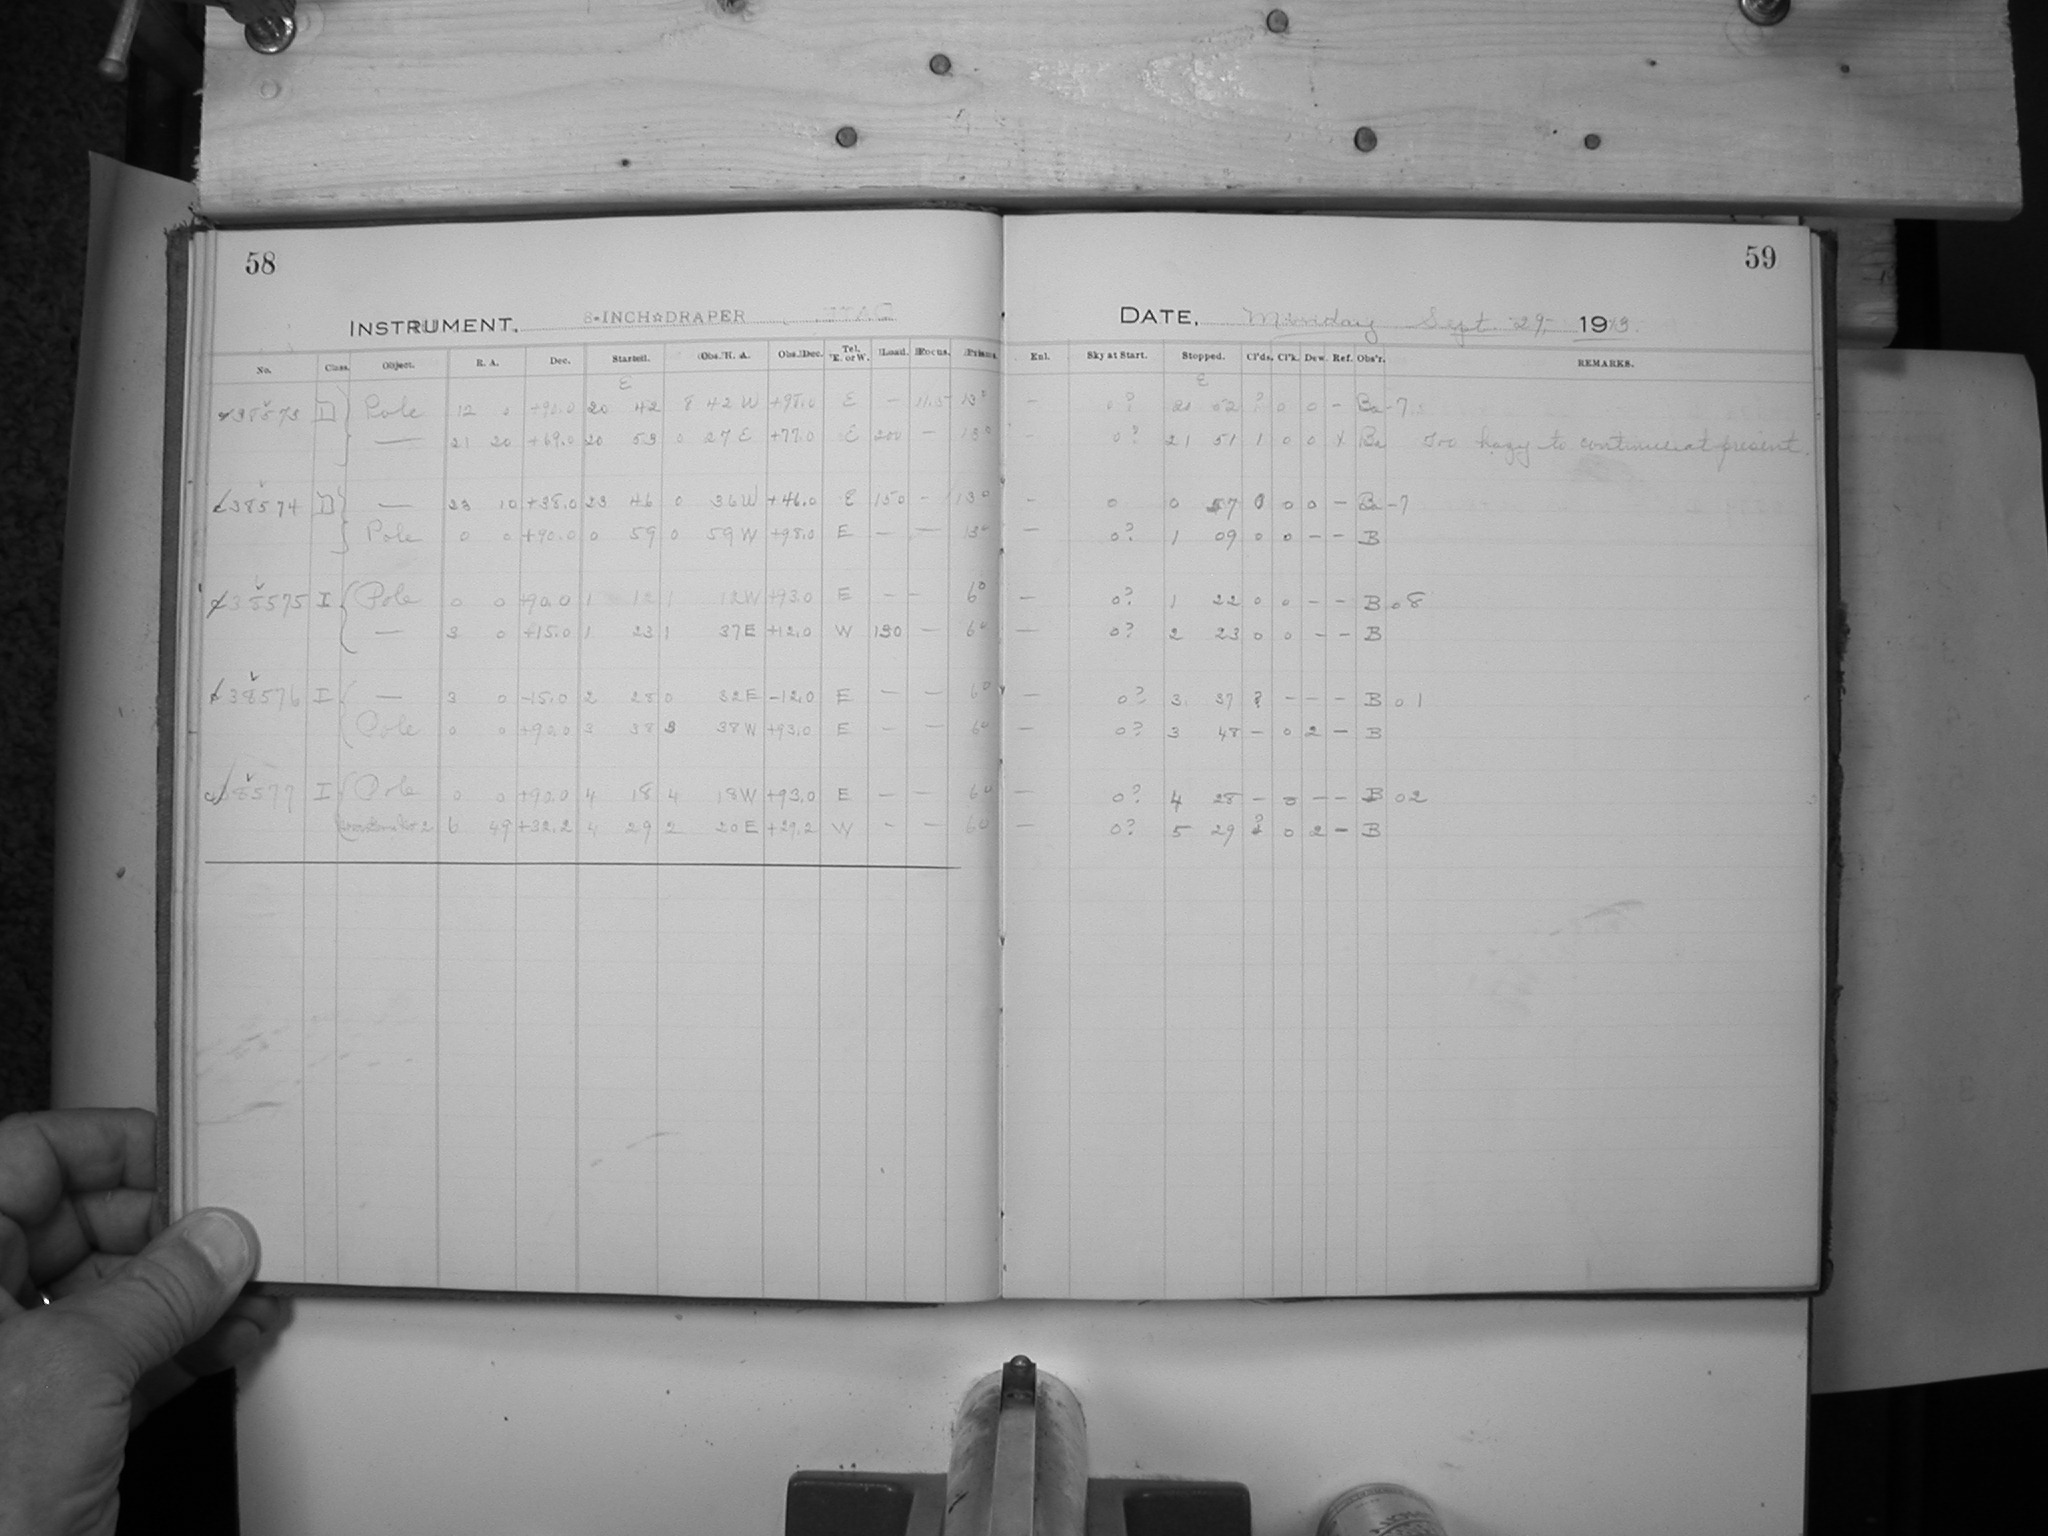 58
INSTRUMENT, 8-INCH☆DRAPER
No. Class. Object. R. A. Dec. Started. Obs. R. A. Obs. Dec. Tel. E. or W. Load. Focus. Prisms.
E
38573 D Pole 12 0 +90.0 20 42 8 42 W +98.0 E — 11.5 13°
— 21 20 +69.0 20 53 0 27 E +77.0 E 200 — 13°
38574 D — 23 10 +38.0 23 46 0 36 W +46.0 E 150 — 13°
Pole 0 0 +90.0 0 59 0 59 W +98.0 E — — 13°
38575 I Pole 0 0 +90.0 1 12 1 12 W +93.0 E — — 6°
— 3 0 +15.0 1 23 1 37 E +12.0 W 130 — 6°
38576 I — 3 0 -15.0 2 28 0 32 E -12.0 E — — 6°
Pole 0 0 +90.0 3 38 3 38 W +93.0 E — — 6°
38577 I Pole 0 0 +90.0 4 18 4 18 W +93.0 E — — 6°
2 6 49 +32.2 4 29 2 20 E +29.2 W — — 6°
59
DATE, Monday Sept. 29, 1913.
Enl. Sky at Start. Stopped. Cl'ds. Cl'k. Dew. Ref. Obs'r. REMARKS.
E
— 0? 20 52 ? 0 0 — Ba -7
— 0? 21 51 1 0 0 Ba Too hazy to continue at present.
— 0 0 57 0 0 0 — Ba -7
— 0? 1 09 0 0 — — B
— 0? 1 22 0 0 — — B 08
— 0? 2 23 0 0 — — B
— 0? 3 37 ? — — — B 01
— 0? 3 48 — 0 2 — B
— 0? 4 28 — 0 — — B 02
— 0? 5 29 ? 0 2 — B